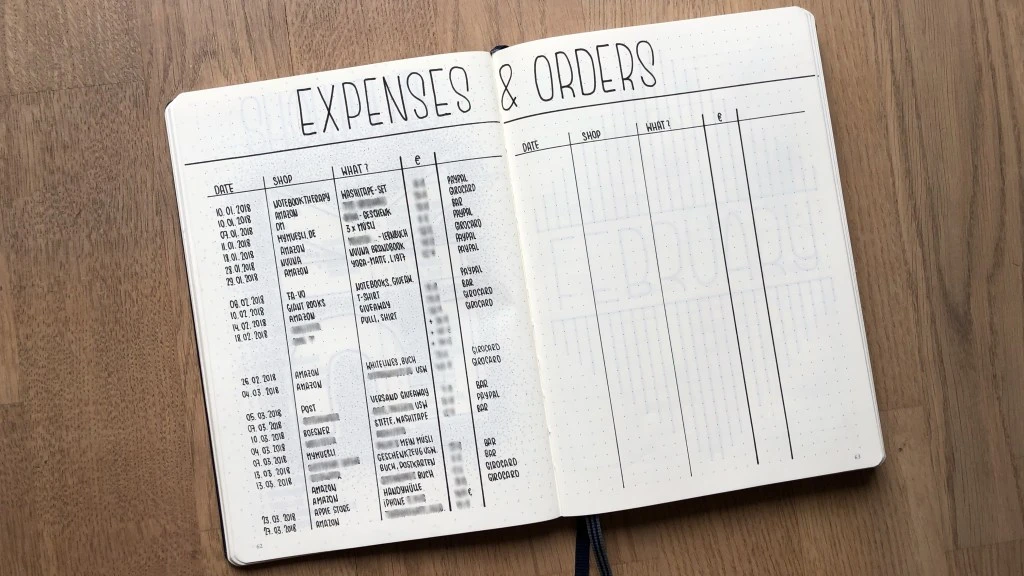 EXPENSES & ORDERS
DATE SHOP WHAT? €
10.01.2018 NOTEBOOKTHERAPY WASHITAPE-SET PAYPAL
10.01.2018 AMAZON GIROCARD
07.01.2018 DM - GESCHENK BAR
11.01.2018 MYMUESLI.DE 3 x MÜSLI PAYPAL
18.01.2018 AMAZON - LERNBUCH GIROCARD
28.01.2018 WUWA WUWA PAYPAL
29.01.2018 AMAZON YOGA-MATTE, PAYPAL
08.02.2018 NOTEBOOKS, GIVEAW. PAYPAL
10.02.2018 GIANT BOOKS T-SHIRT BAR
14.02.2018 AMAZON GIVEAWAY GIROCARD
18.02.2018 PULLI, SHIRT GIROCARD
26.02.2018 AMAZON WHITELINES, BUCH GIROCARD
04.03.2018 AMAZON USW GIROCARD
05.03.2018 POST VERSAND GIVEAWAY BAR
07.03.2018 USW PAYPAL
10.03.2018 BOESNER STIFTE, WASHITAPE BAR
04.03.2018
07.03.2018 MYMUESLI MEIN MÜSLI BAR
13.03.2018 GESCHENKZEUG USW. BAR
13.03.2018 BUCH, POSTKARTEN GIROCARD
AMAZON BUCH GIROCARD
AMAZON HANDYHÜLLE
23.03.2018 APPLE STORE IPHONE €
27.03.2018 AMAZON
62
DATE SHOP WHAT? €
63